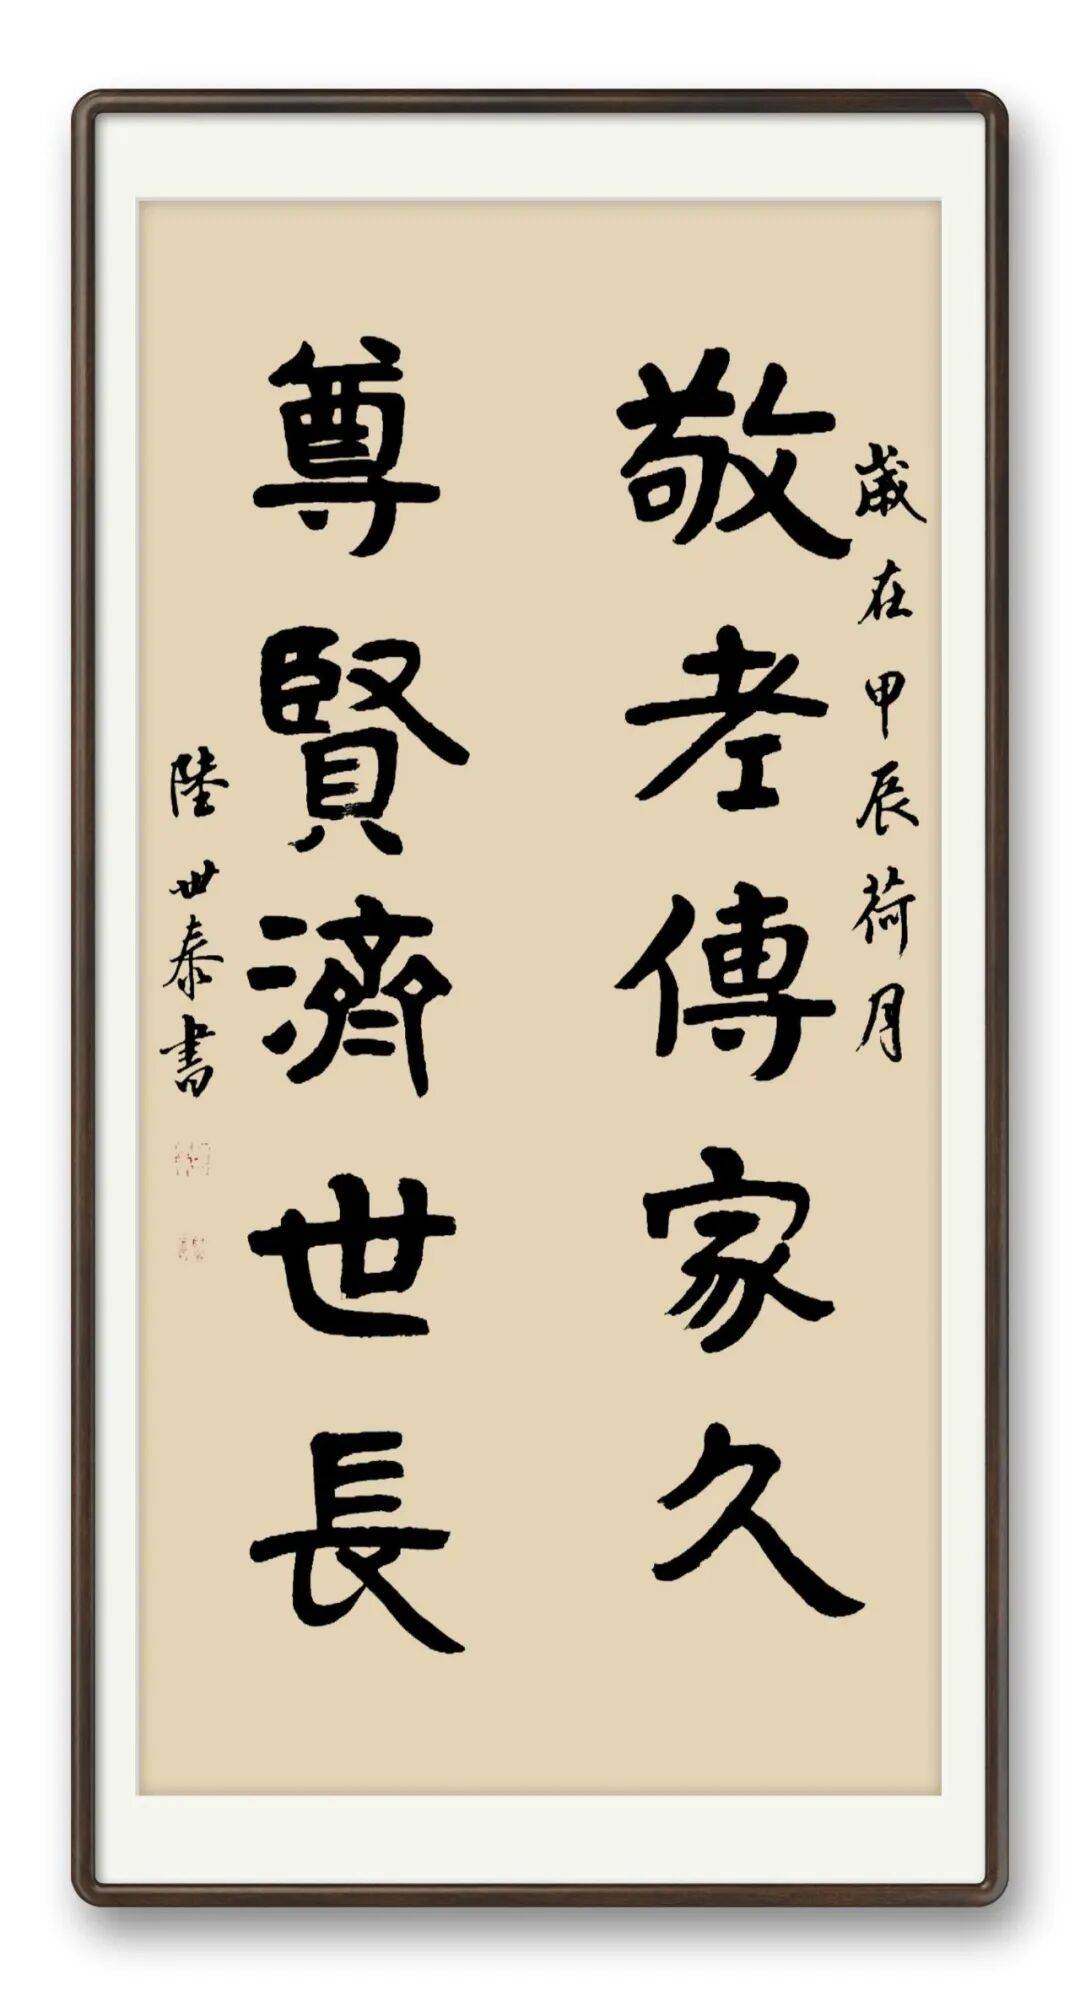 歲在甲辰荷月
敬老傳家久
尊賢濟世長
陸世泰書